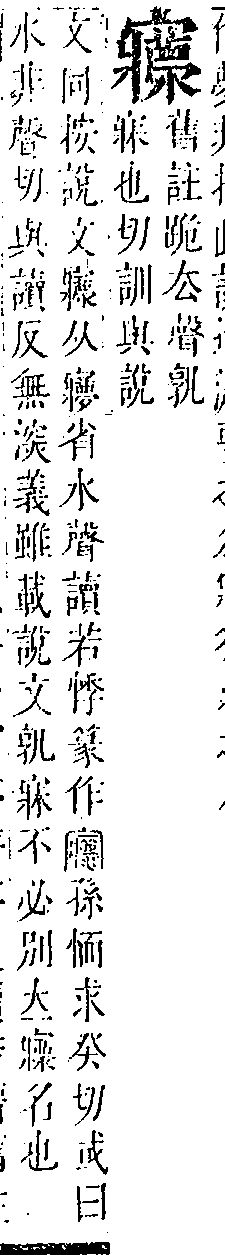 舊註跪去聲孰
寐也切訓與說
文同按說文从㝱省水聲讀若悸篆作孫愐求癸切或曰
水非聲切與讀反無深義雖載說文孰寐不必別大名也